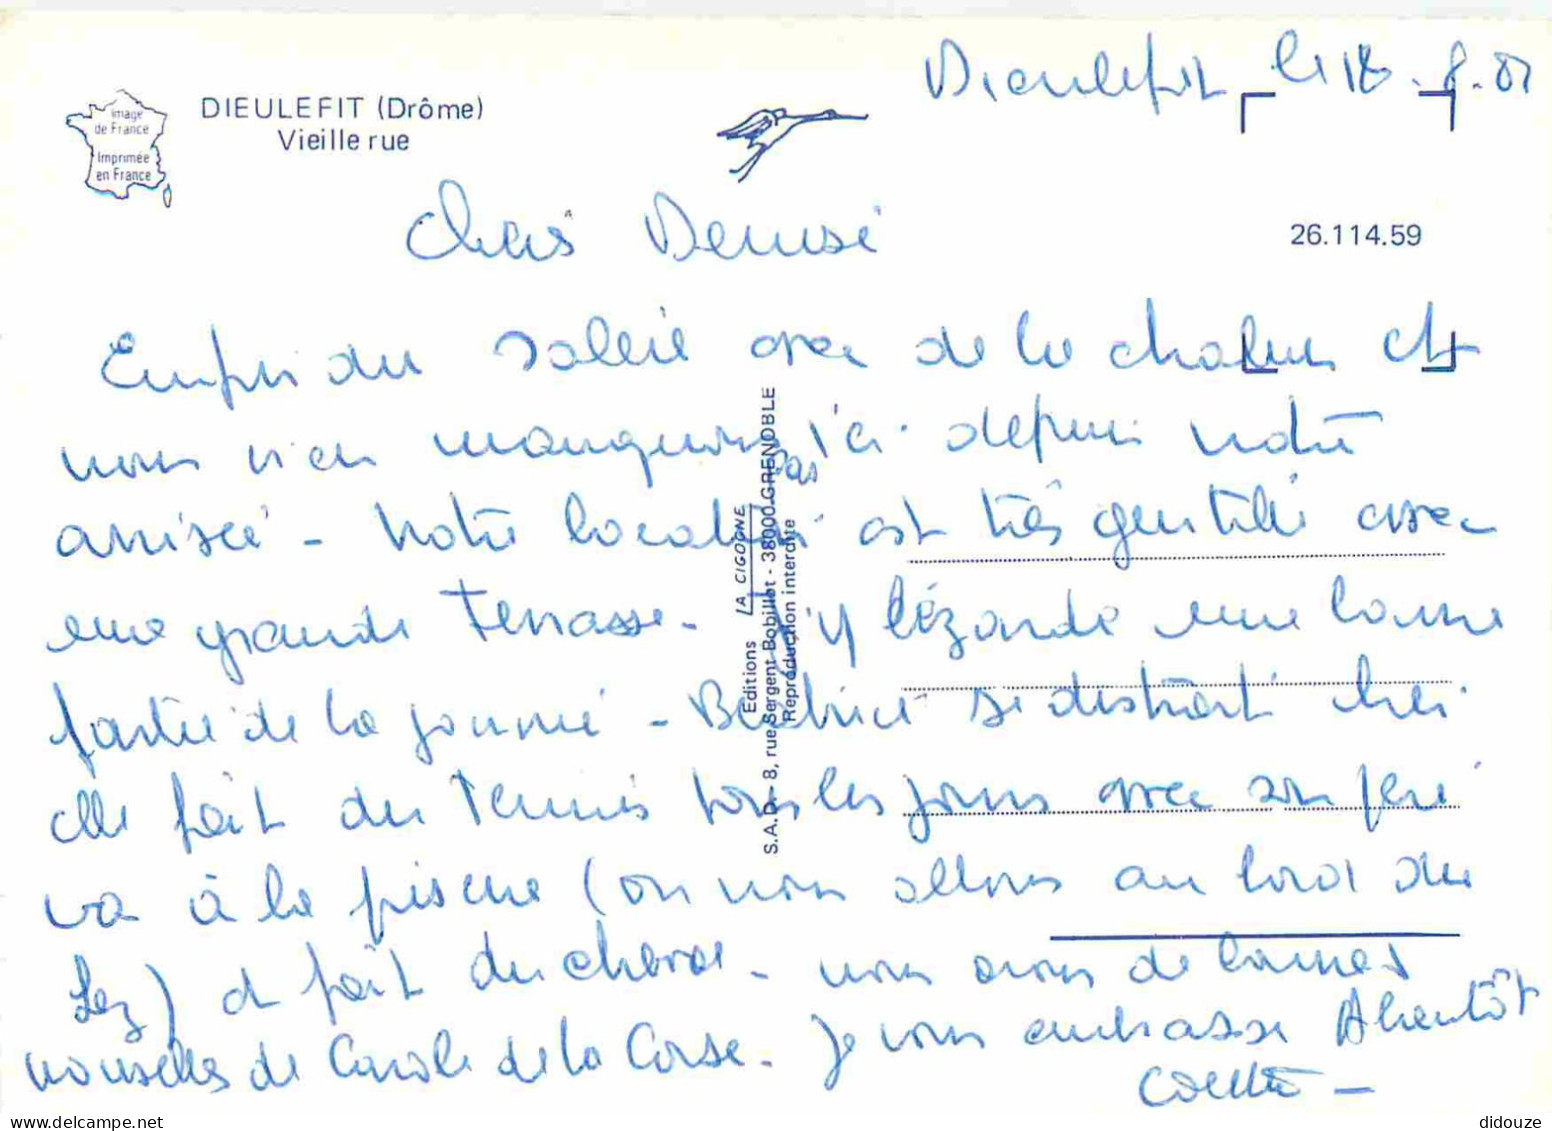 Dieulefit le 18.8.81
Image
de France
Imprimée
en France
DIEULEFIT (Drôme)
Vieille rue
26.114.59
Chère Denise
du soleil avec de la chaleur et
nous rien manquons ici depuis notre
pas
arrivée - Notre location est très gentille avec
une grande terrasse - j'y lézarde une bonne
partie de la journée - Béatrice se distrait bien
elle fait du tennis tous les jours avec son père
va à la piscine (ou nous allons au bord du
Lez) et fait du cheval - nous avons de bonnes
nouvelles de Carole de la Corse - Je vous embrasse A bientôt
Colette -
Editions LA CIGOGNE
S.A.D. - 8, rue Sergent Bobillot - 38000 GRENOBLE
Reproduction interdite
didouze
delcampe.net